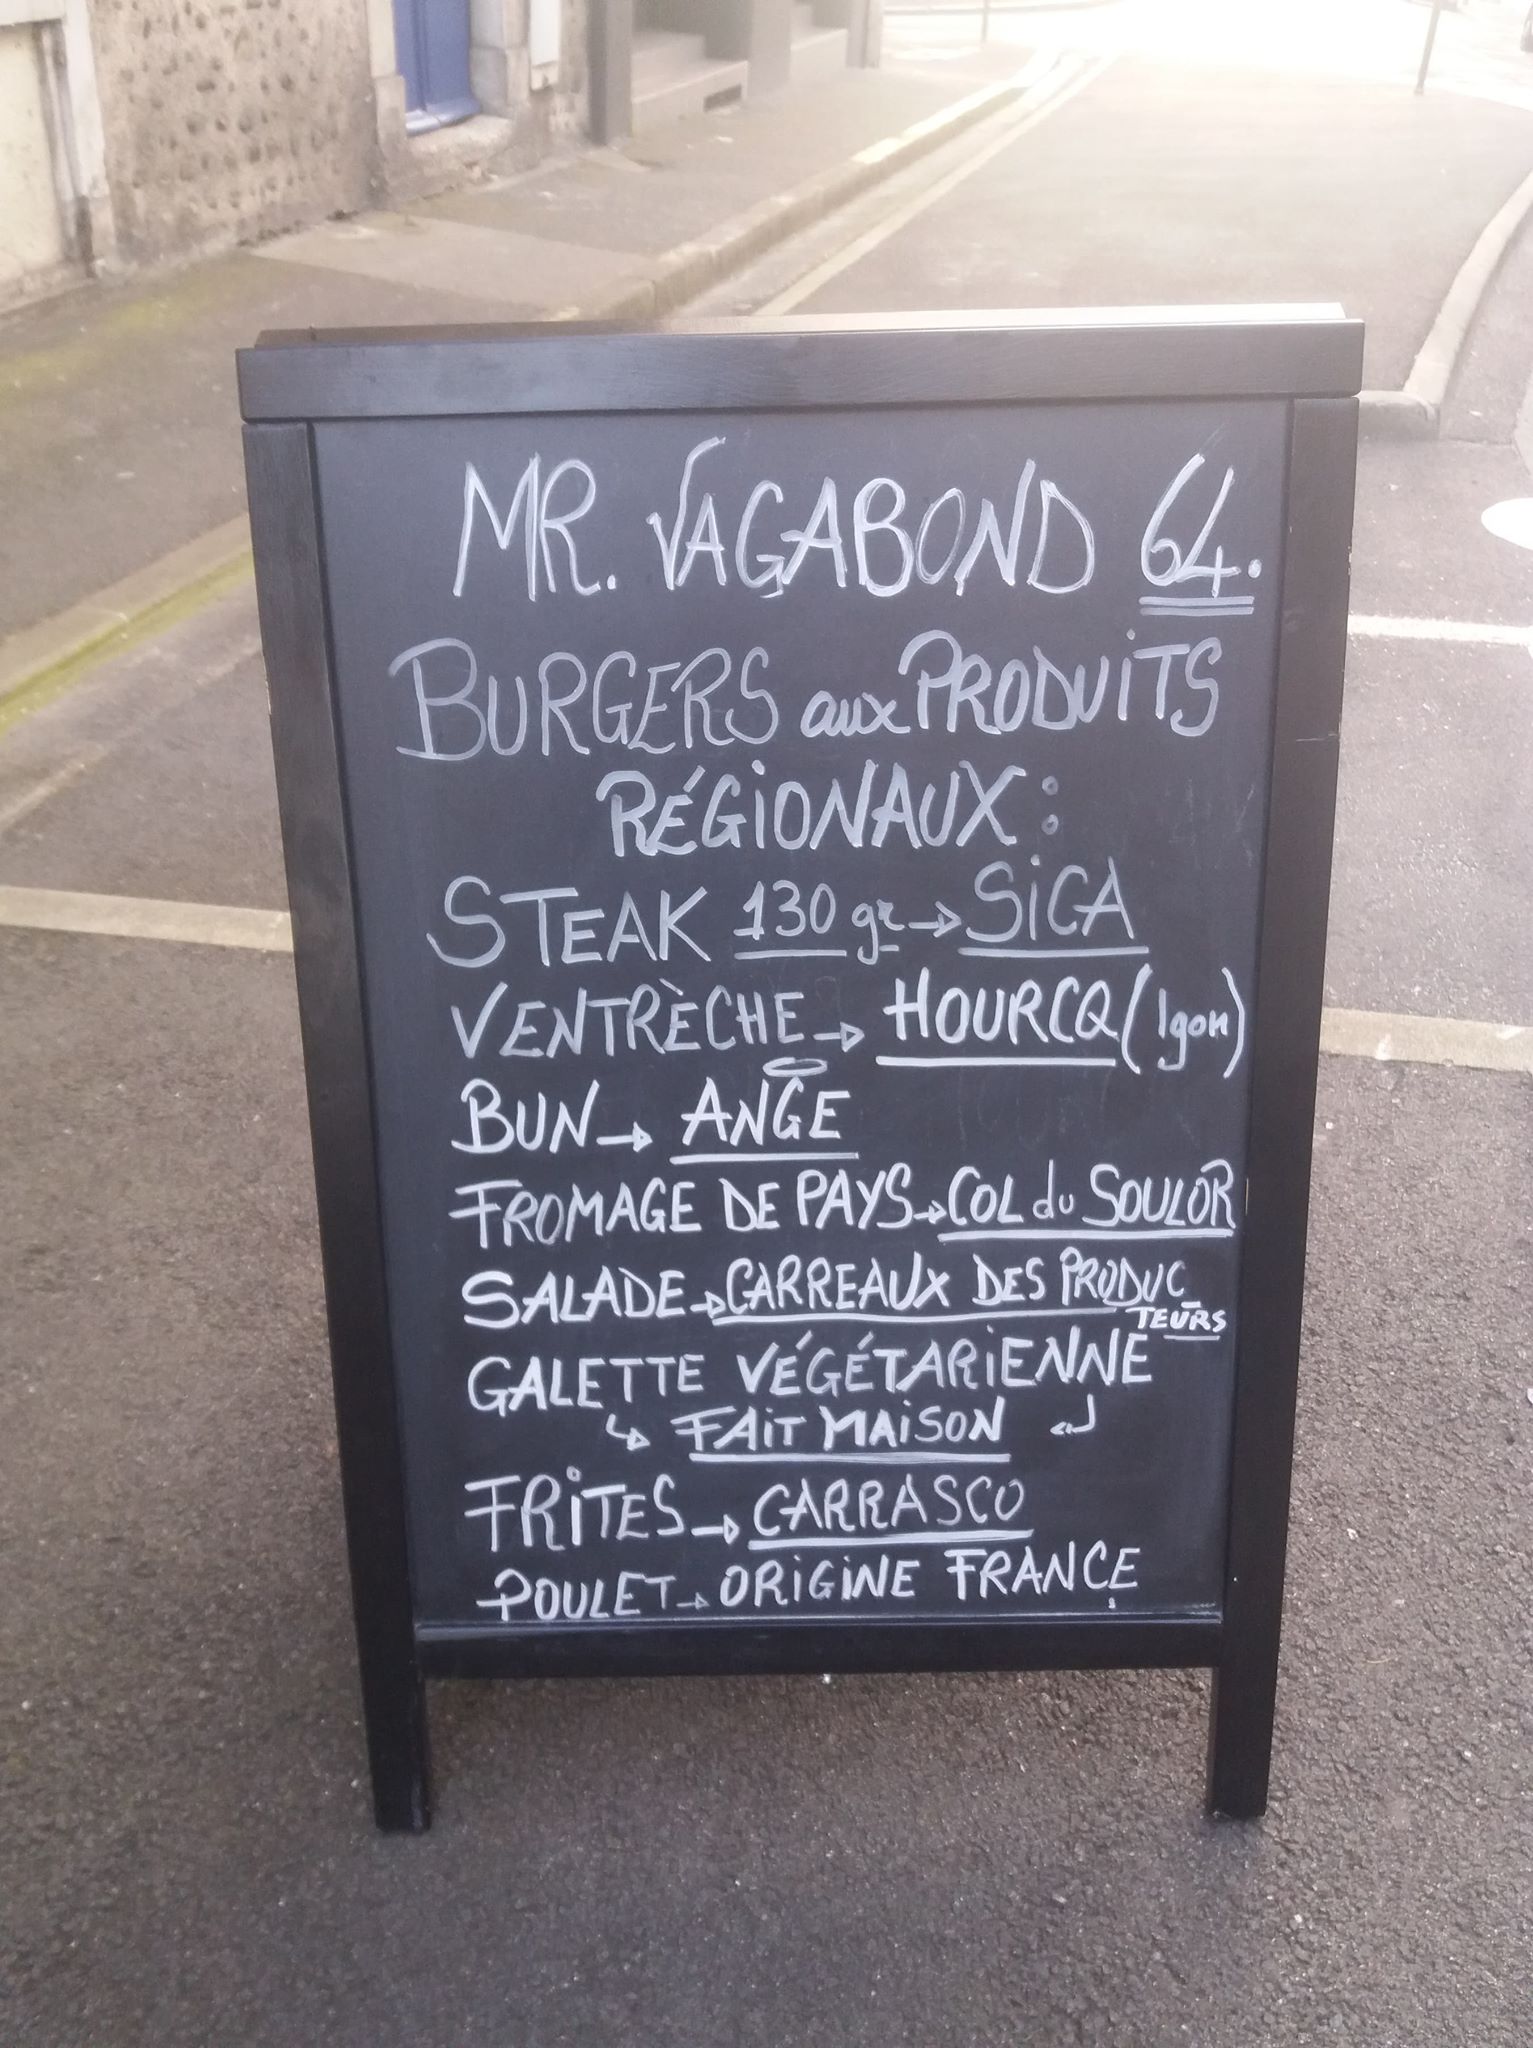 MR. VAGABOND 64.
BURGERS aux PRODUITS
RÉGIONAUX :
STEAK 130 gr → SiCA
VENTRÈCHE → HOURCQ (Igon)
BUN → ANGE
FROMAGE DE PAYS → COL du SOULOR
SALADE → CARREAUX DES PRODUC
TEURS
GALETTE VÉGÉTARiENNE
↳ FAiT MAiSON ↲
FRiTES → CARRASCO
POULET → ORiGiNE FRANCE